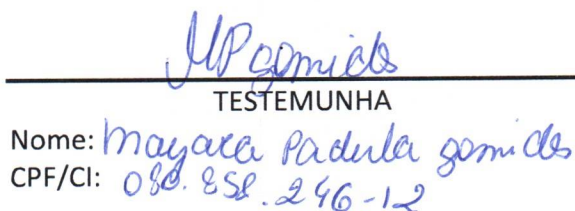 MP gomides
TESTEMUNHA
Nome: Mayara Padula gomides
CPF/CI: 080.858.246-12